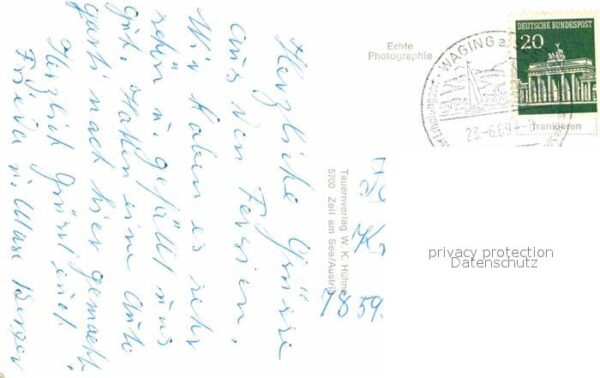 Herzliche Grüsse
aus den Ferien.
Wir haben es sehr
schön u. gefällt uns
gut. Hatten eine gute
nach hier gemacht.
Herzlich grüsst euch
Frieda u. Max Berger
Echte
Photographie
WAGING a.
23.-6.69.-
DEUTSCHE BUNDESPOST
20
Frankieren
Tauernverlag W. K. Hühne
5700 Zell am See/Austria
7859
privacy protection
Datenschutz